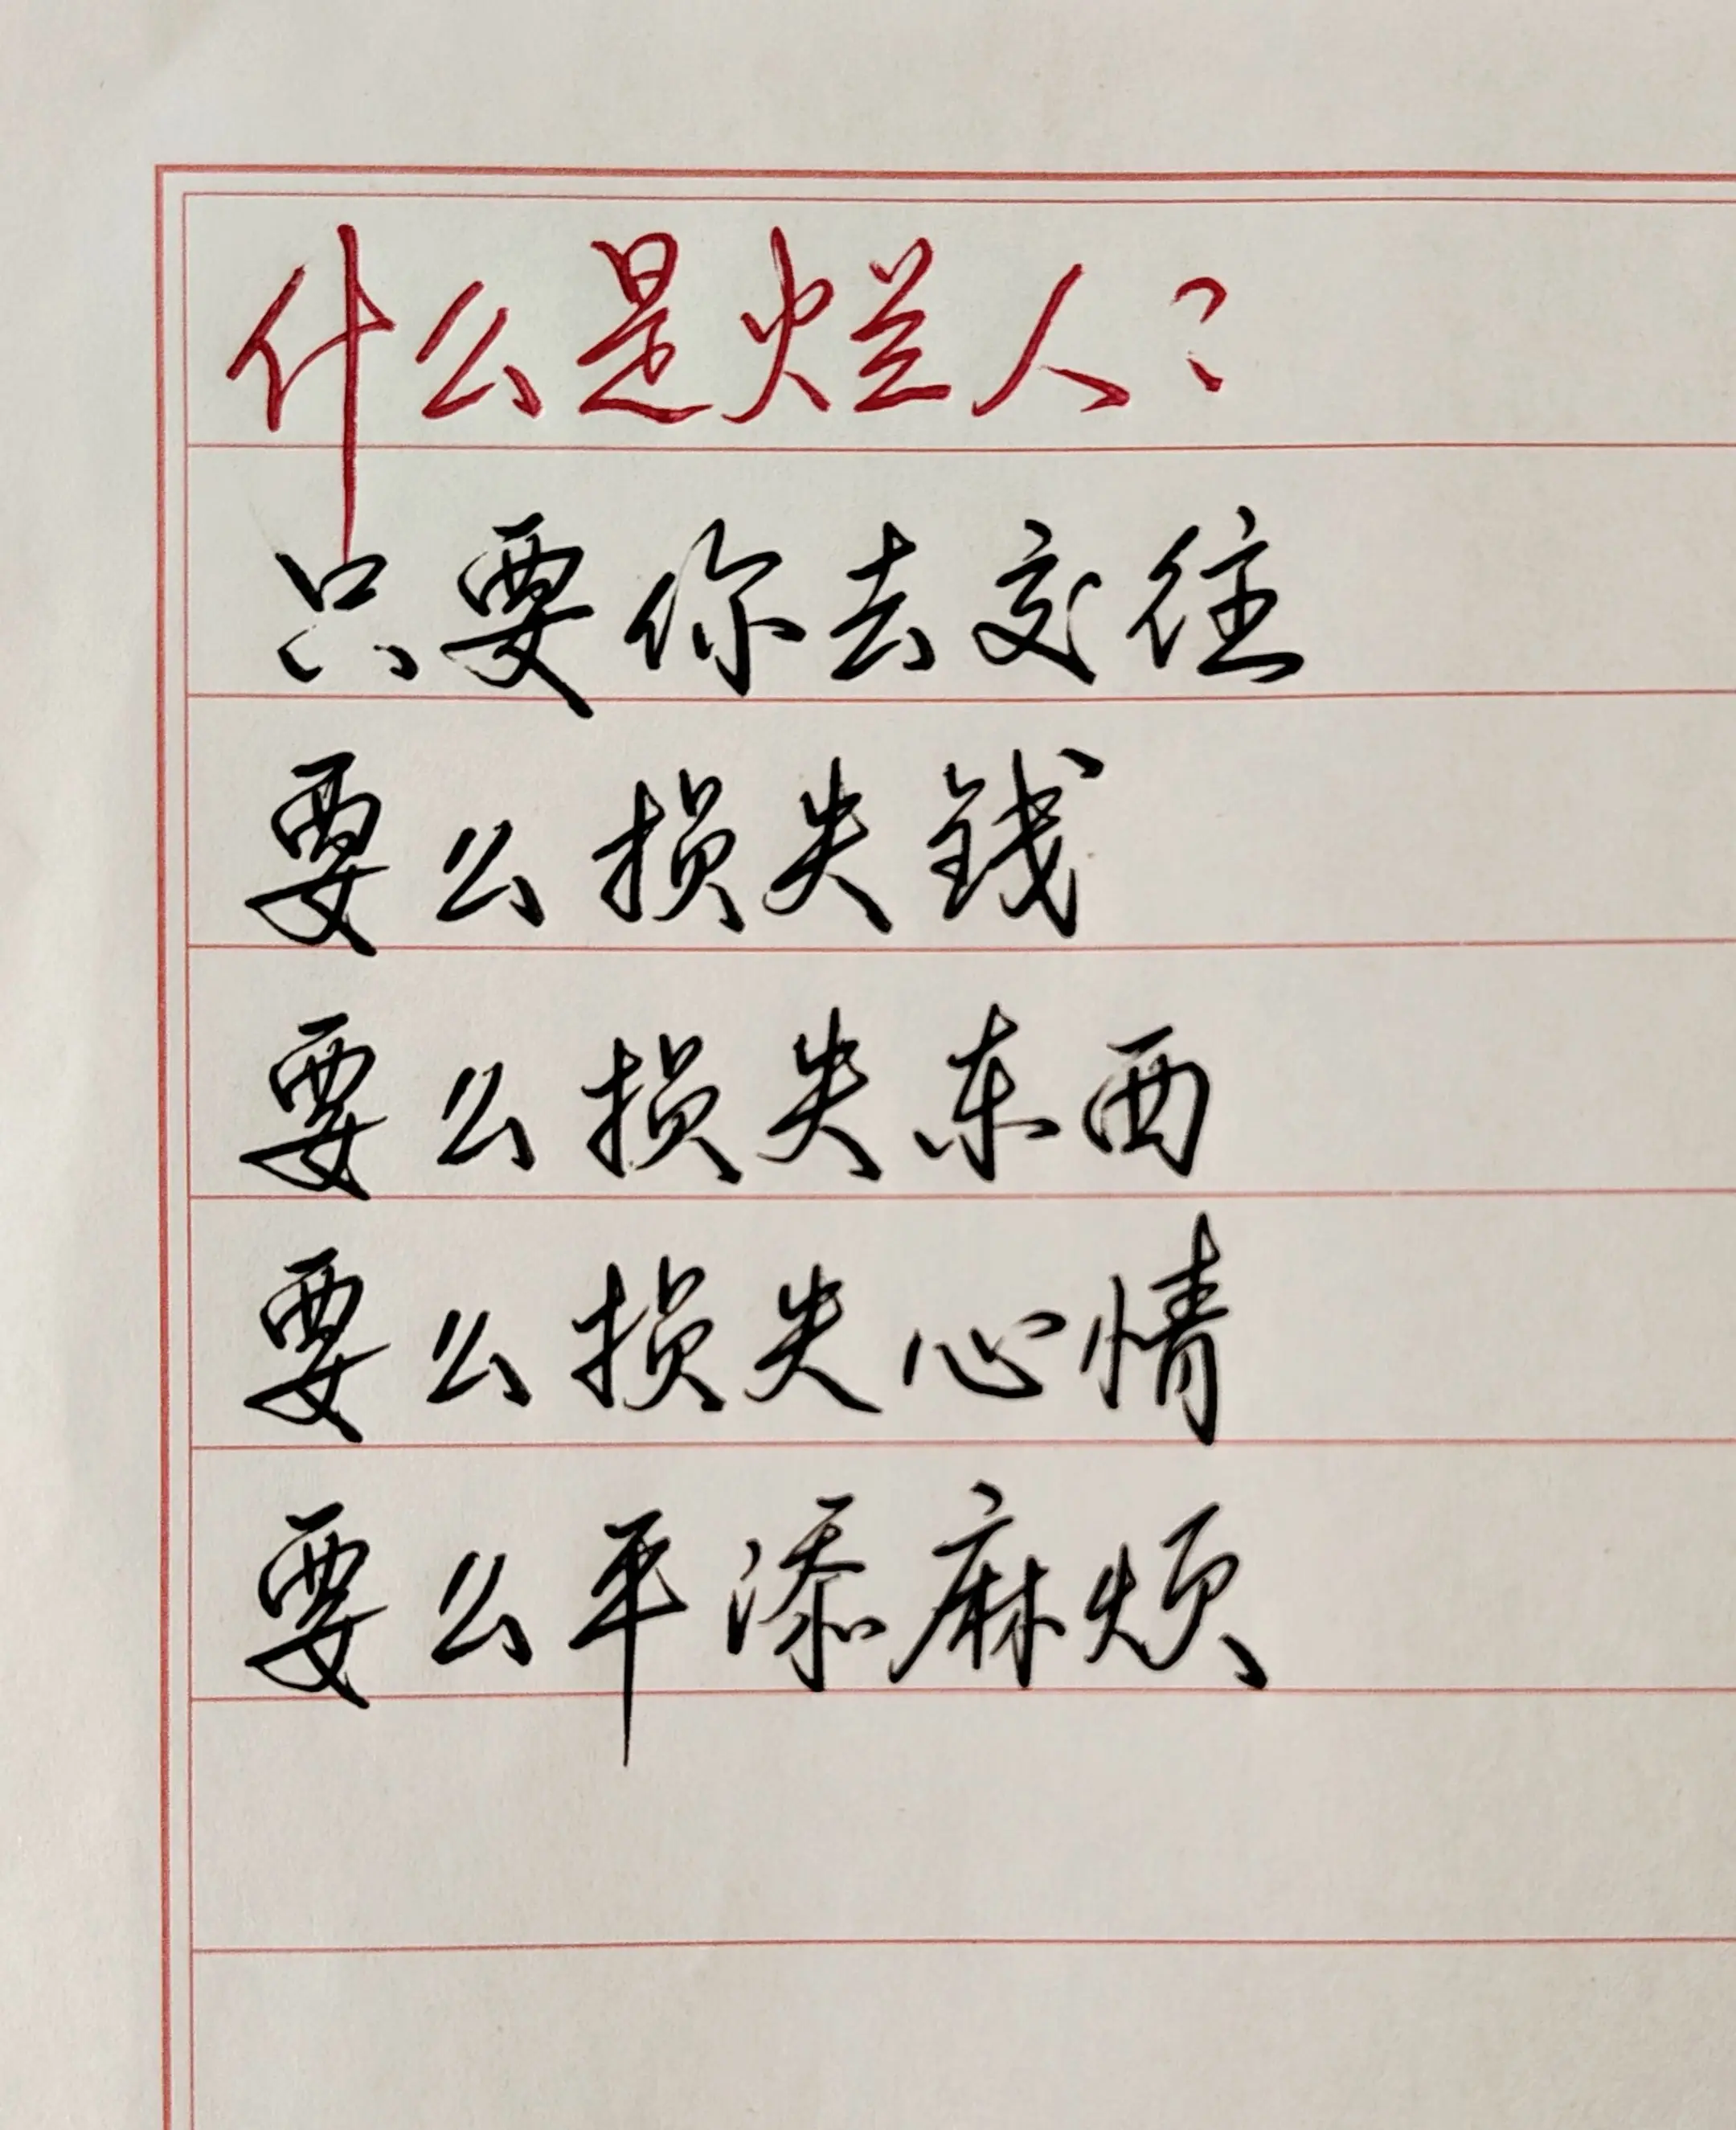 什么是烂人？
只要你去交往
要么损失钱
要么损失东西
要么损失心情
要么平添麻烦